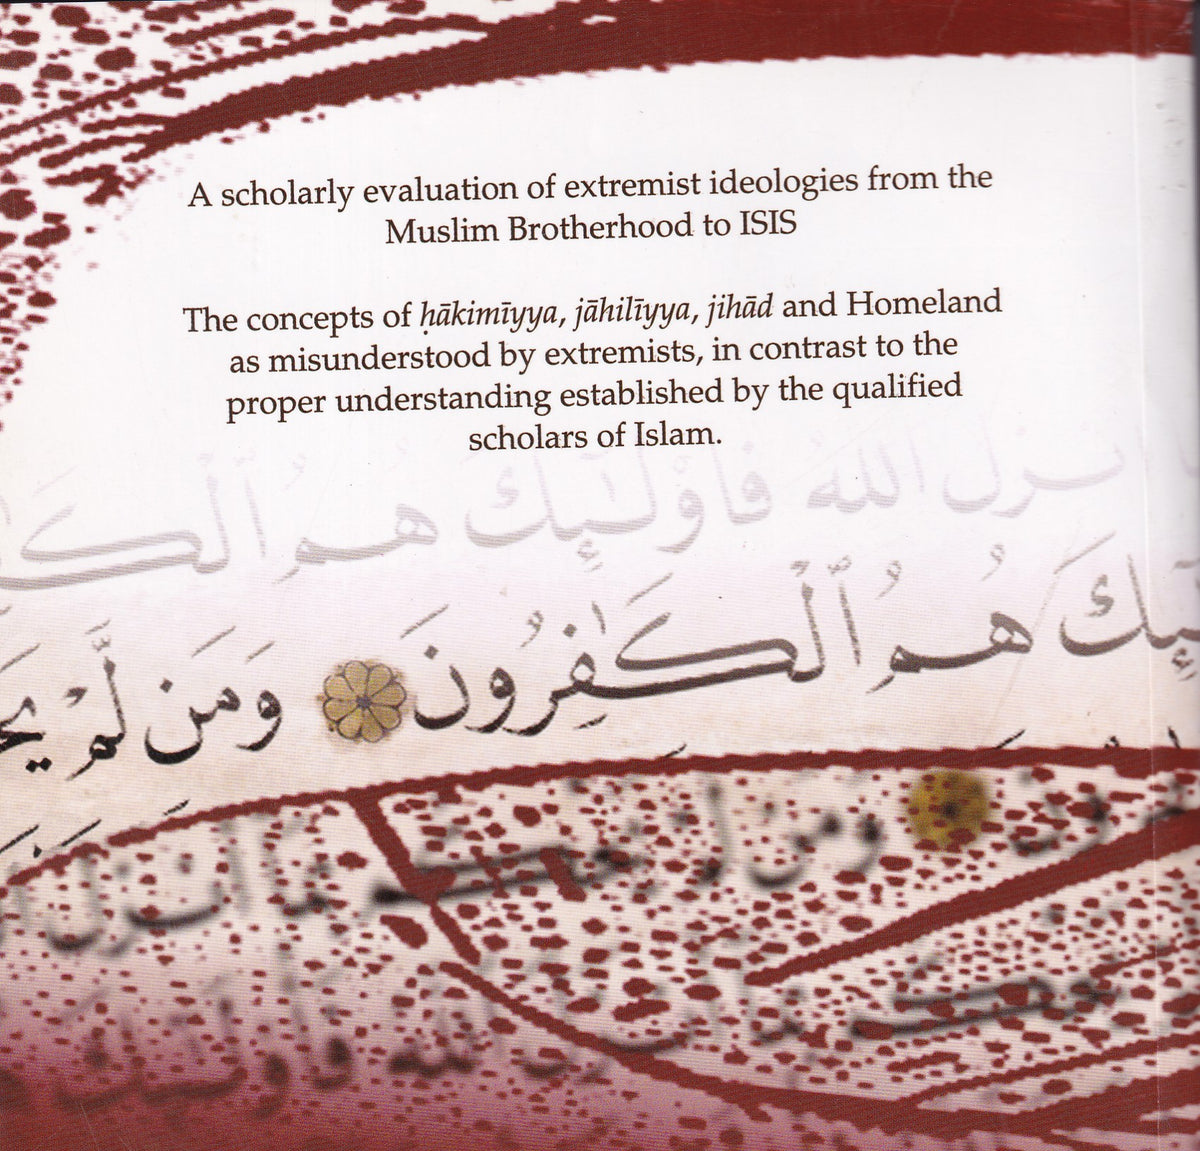 A scholarly evaluation of extremist ideologies from the
Muslim Brotherhood to ISIS
The concepts of ḥākimīyya, jāhilīyya, jihād and Homeland
as misunderstood by extremists, in contrast to the
proper understanding established by the qualified
scholars of Islam.
ٱللَّهُ فَأُو۟لَـٰٓئِكَ هُمُ
هُمُ ٱلْكَـٰفِرُونَ وَمَن لَّمْ
وَمَن لَّمْ يَحْكُم بِمَآ أَنزَلَ